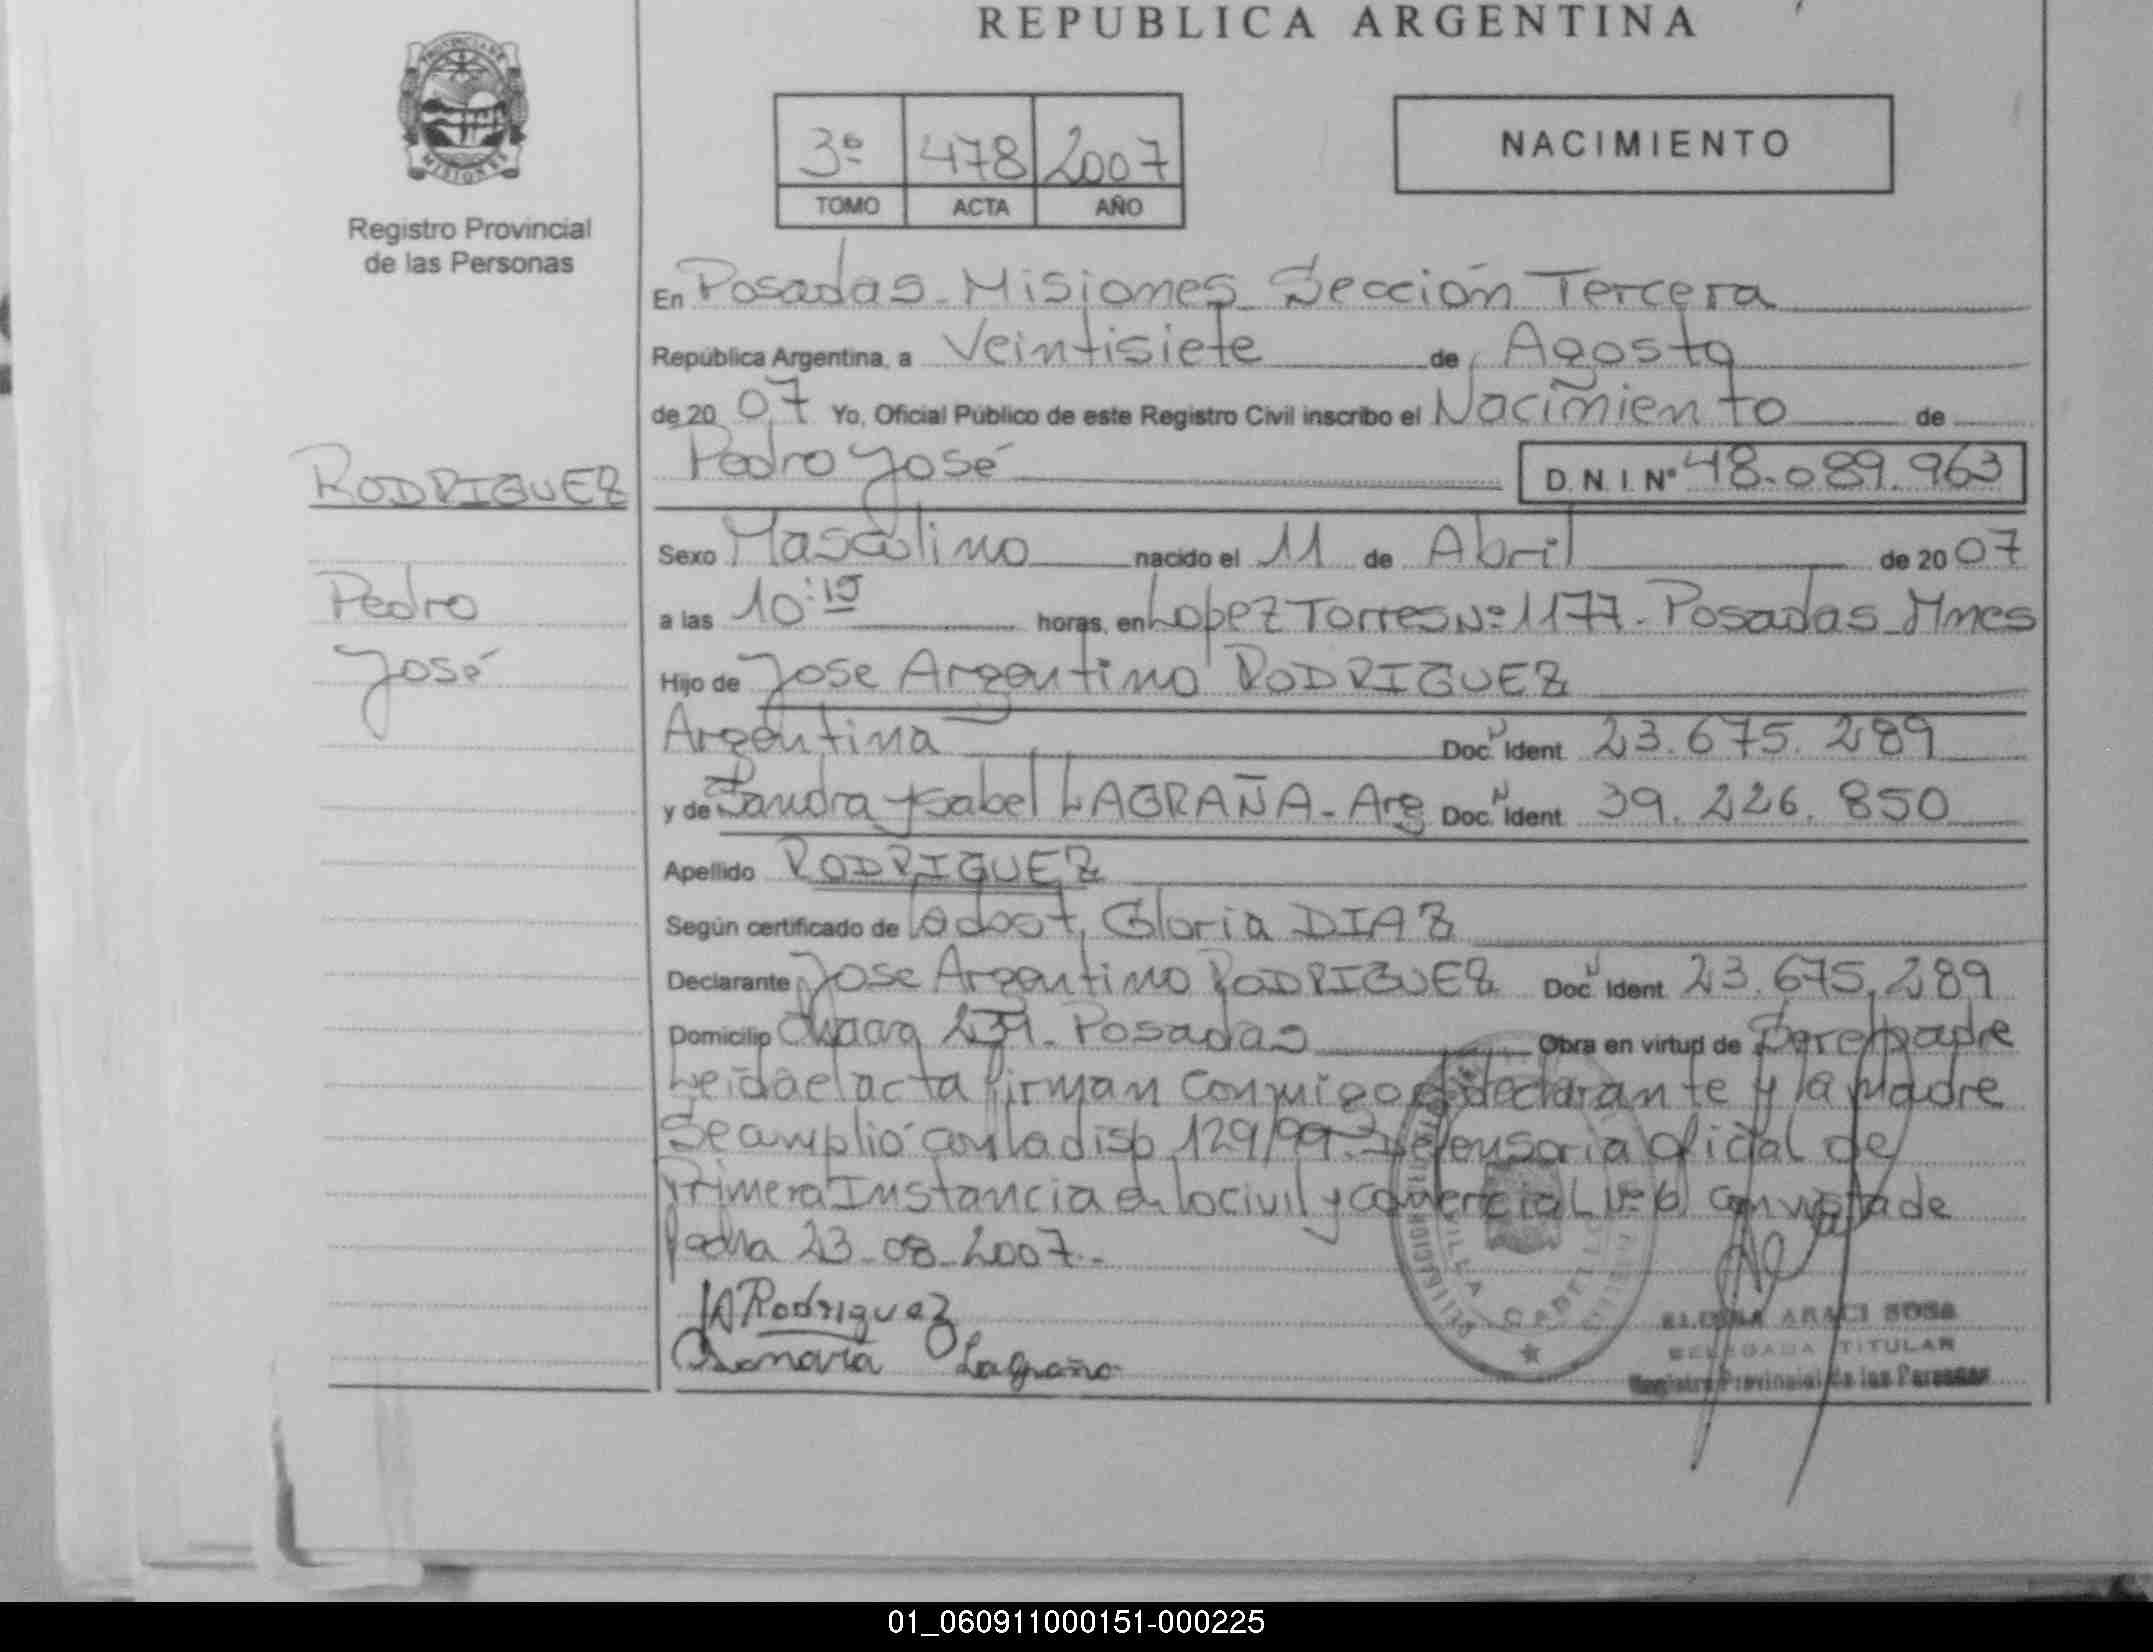 REPUBLICA ARGENTINA
PROVINCIA DE
MISIONES
Registro Provincial
de las Personas
3º 478 2007
TOMO ACTA AÑO
NACIMIENTO
En Posadas - Misiones - Sección Tercera
República Argentina, a Veintisiete de Agosto
de 20 07 Yo, Oficial Público de este Registro Civil inscribo el Nacimiento de
Pedro José D.N.I. Nº 48.089.963
RODRIGUEZ
Pedro
José
Sexo Masculino nacido el 11 de Abril de 20 07
a las 10:15 horas, en Lopez Torres Nº 1177 - Posadas - Mnes
Hijo de Jose Argentino RODRIGUEZ
Argentina Doc. Ident. 23.675.289
y de Sandra Ysabel LAGRAÑA - Arg Doc. Ident. 39.226.850
Apellido RODRIGUEZ
Según certificado de Gloria DIAZ
Declarante Jose Argentino RODRIGUEZ Doc. Ident. 23.675.289
Domicilio Posadas Obra en virtud de Ser el padre
Leida el acta firman conmigo el declarante y la madre
Se amplió con la disp 129/99. Defensoria Oficial de
Primera Instancia en lo civil y comercial Nº 6 con vista de
fecha 23-08-2007.-
JARodriguez
Sandra Lagraña
VILLA CABELLO
ARACI SOSA
DELEGADA TITULAR
Registro Provincial de las Personas
01_060911000151-000225